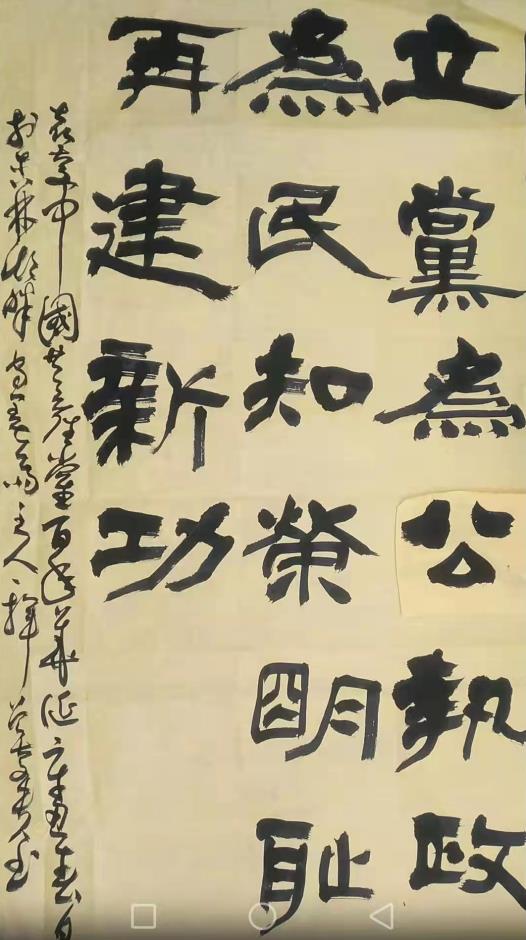 立黨為公執政
為民知榮明恥
再建新功
中國共產黨百年華誕
主人